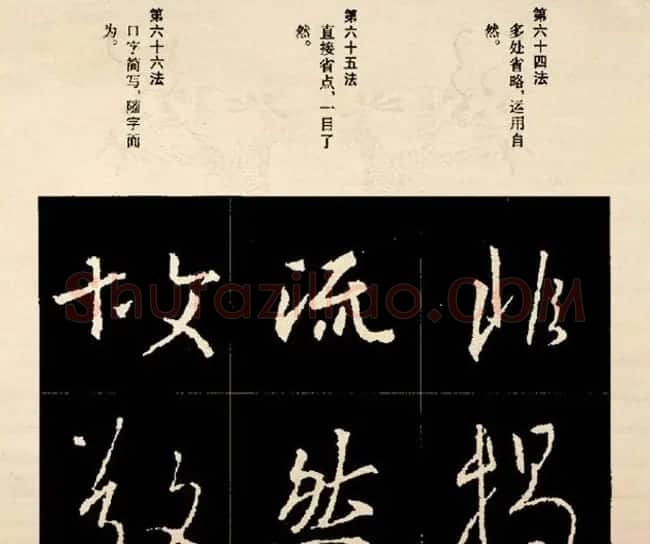 第六十四法
多处省略，运用自
然。
第六十五法
直接省点，一目了
然。
第六十六法
口字简写，随字而
为。
流
然
故
Shufaziliao.COM